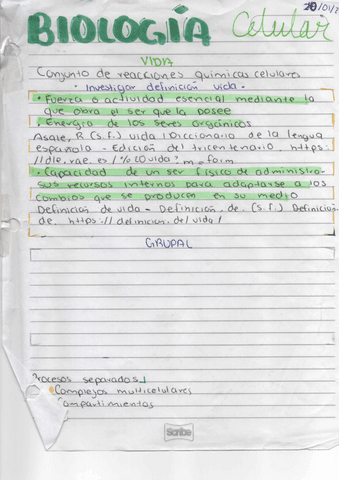 BIOLOGÍA Celular
VIDA
Conjunto de reacciones químicas celulares
• Investigar definición vida •
• Fuerza o actividad esencial mediante la
que obra el ser que la posee
• Energía de los seres orgánicos
Asale, R (s.f.) vida | Diccionario de la lengua
española - Edición del tricentenario, https:
//dle.rae.es/%20vida?m=form
• Capacidad de un ser físico de administrar
sus recursos internos para adaptarse a los
cambios que se producen en su medio
Definición de vida - Definición.de. (s.f.) Definición
de. https://definicion.de/vida/
GRUPAL
Procesos separados
Complejos multicelulares
Compartimientos
Scribe